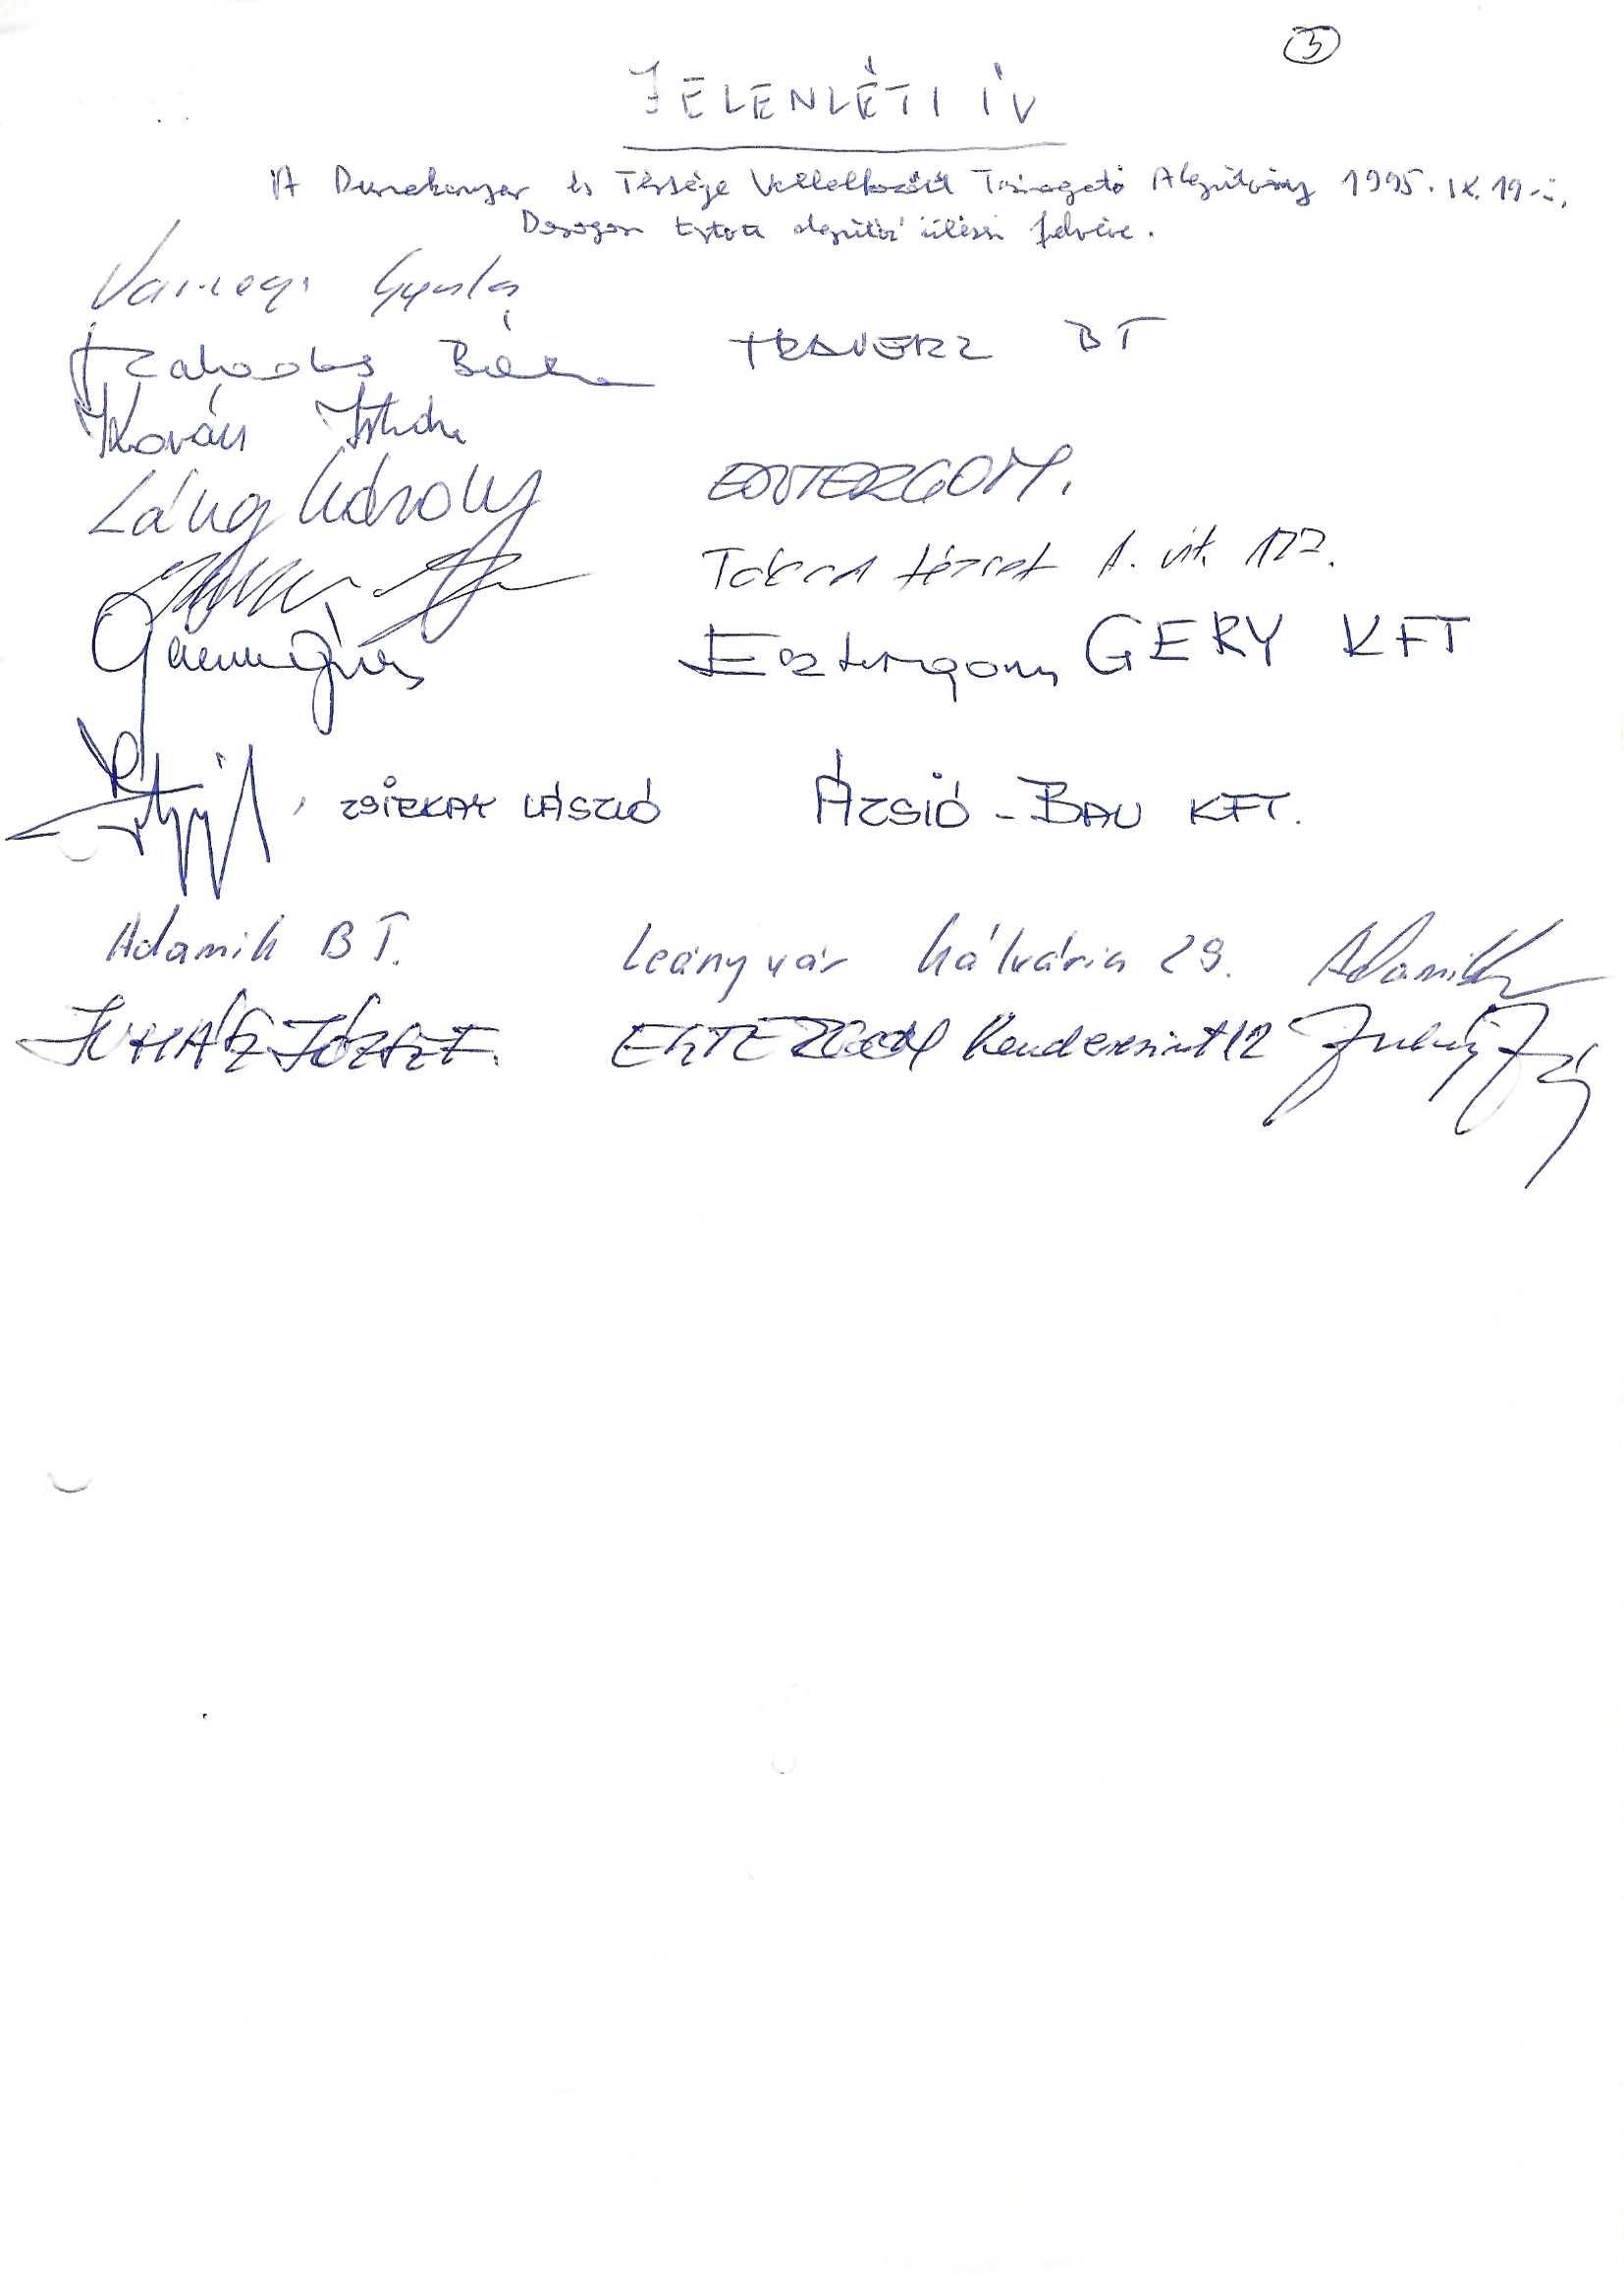 5
JELENLÉTI ÍV
A Dunakanyar és Térsége Vállalkozóit Támogató Alapítvány 1995. IX. 19-i,
Dorogon tartott alapító ülésén felvéve.
Gyula
Szabados Béla TRAVERZ BT
Kovács István
Láng Károly ESZTERGOM.
József A. út 177.
Esztergom GERY KFT
ZSIRKAY LÁSZLÓ ÁZSIÓ - BAU KFT.
Adamik BT. Leányvár Kálvária 29. Adamik
JUHÁSZ JÓZSEF. ESZTERGOM Kenderesi út 12 Juhász